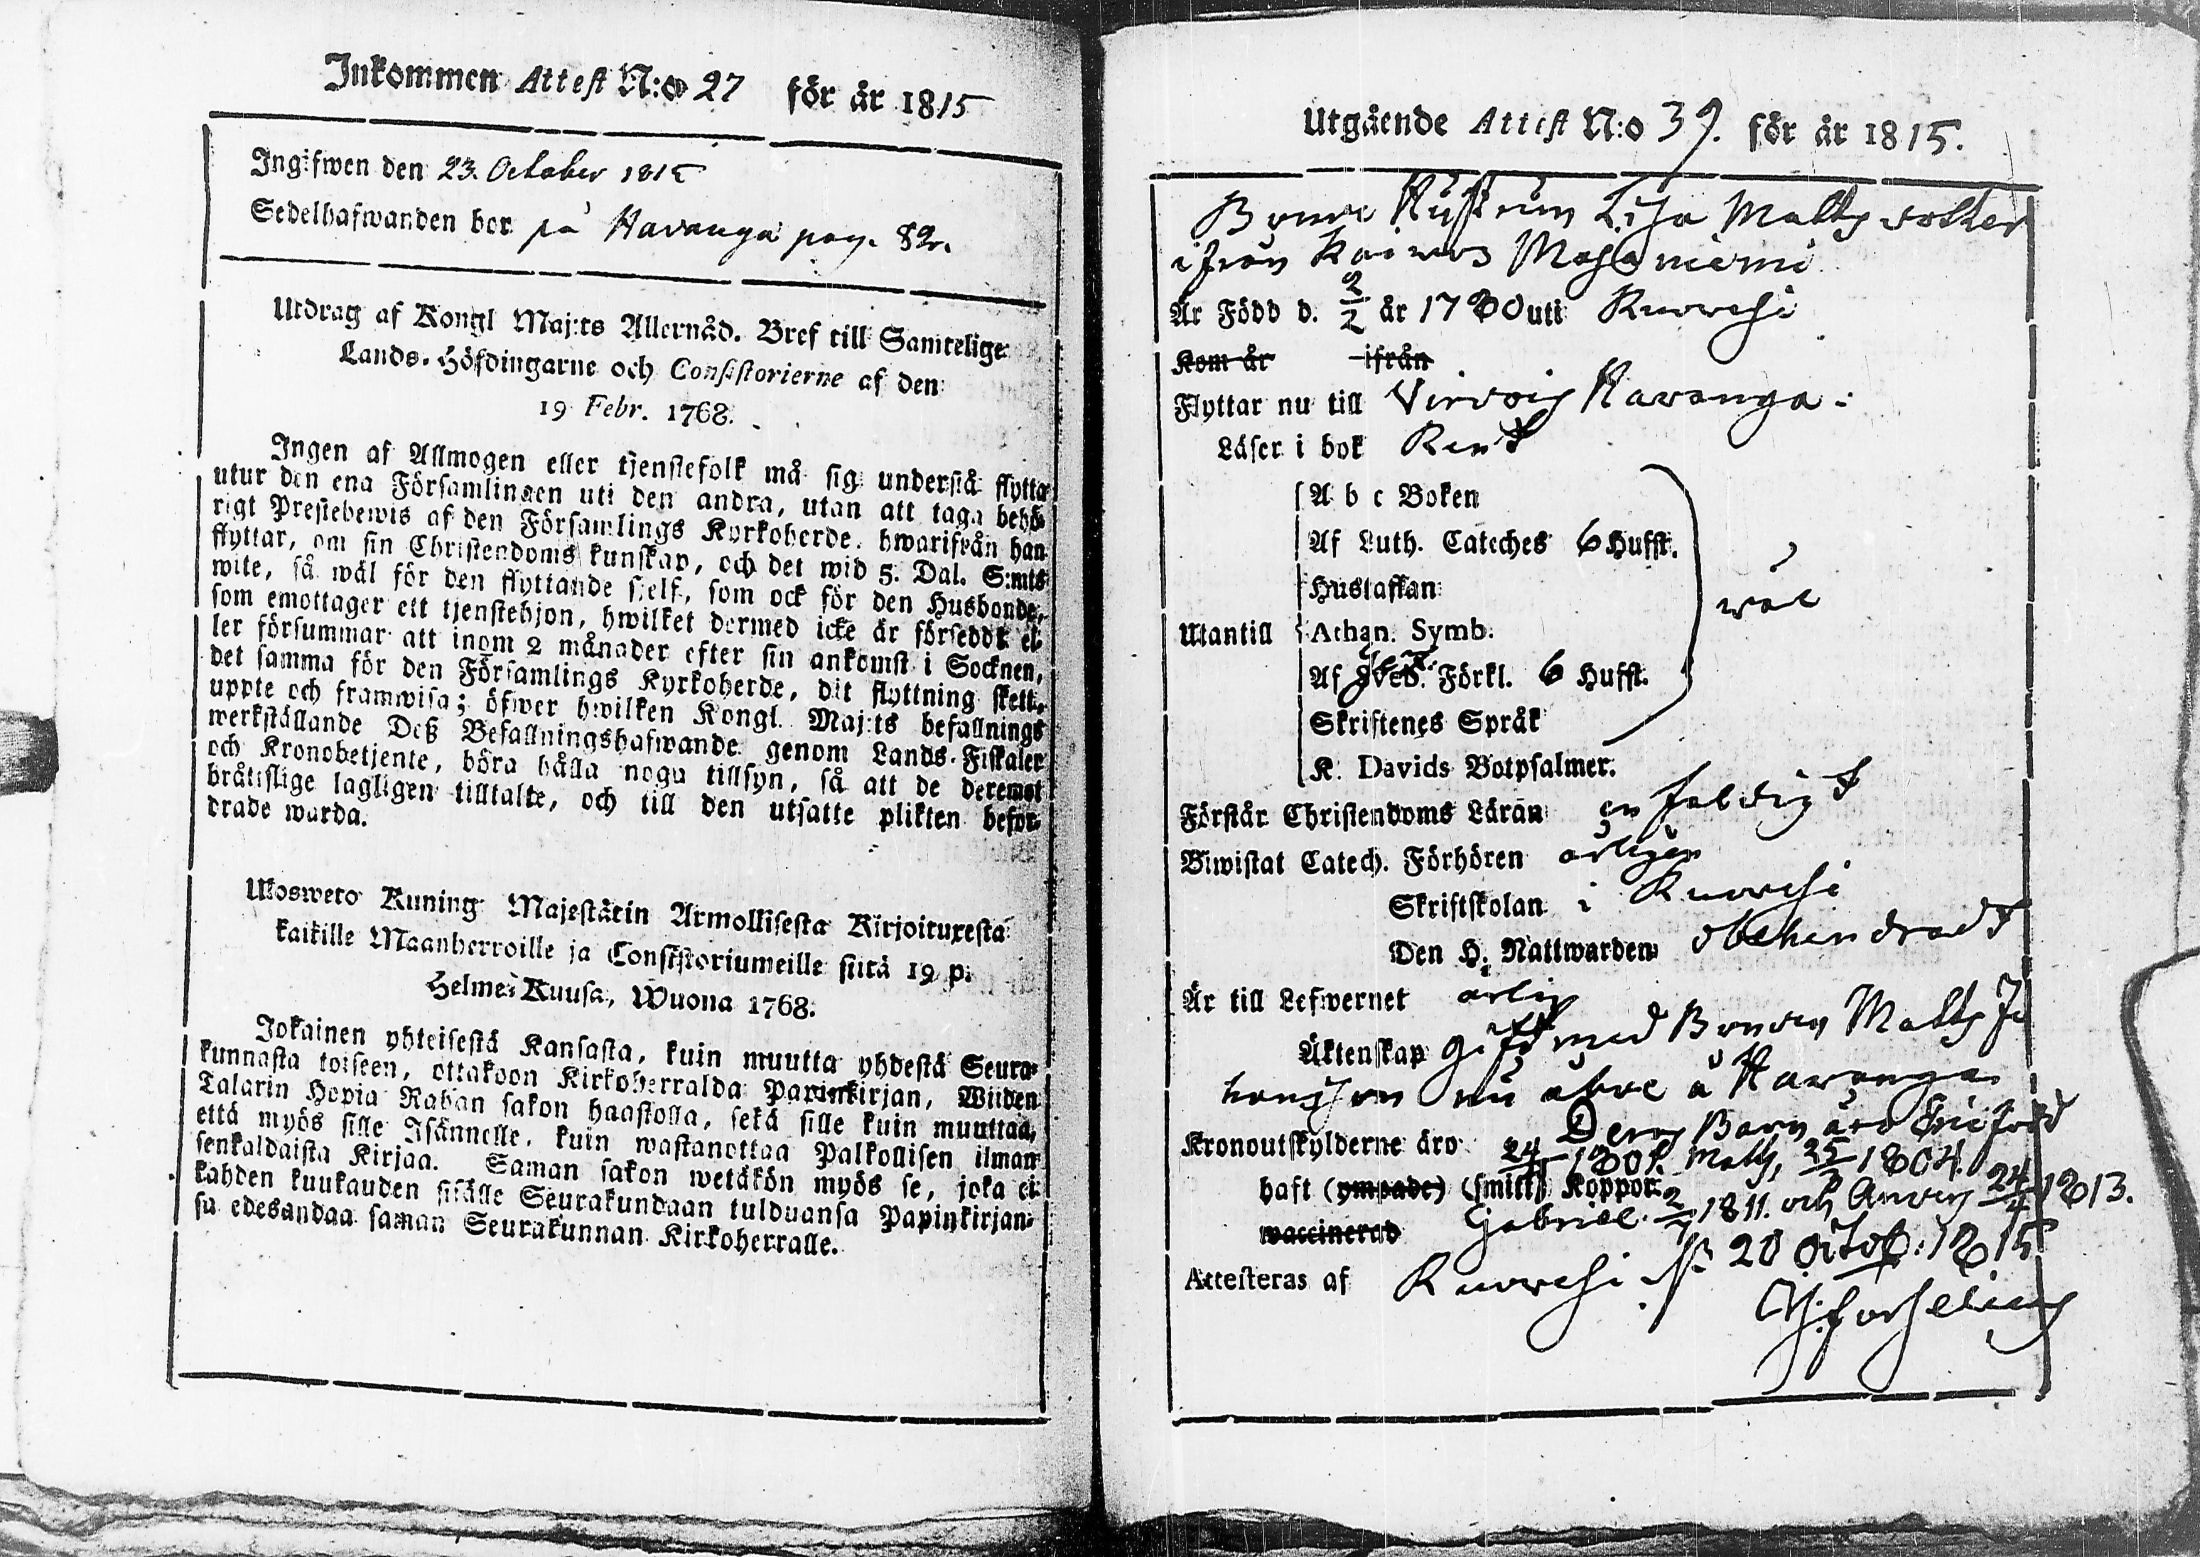 Inkommen Attest N:o 27 för år 1815
Ingifwen den 23. October 1815
Sedelhafwanden bor på Havanga pag. 82.
Utdrag af Kongl Maj:ts Allernåd. Bref till Samtelige
Lands-Höfdingarne och Consistorierne af den
19 Febr. 1768.
Ingen af Allmogen eller tjenstefolk må sig understå flytta
utur den ena Församlingen uti den andra, utan att taga behö-
rigt Prestebewis af den Församlings Kyrkoherde, hwarifrån han
flyttar, om sin Christendoms kunskap, och det wid 5. Dal. S:mts
wite, så wäl för den flyttande sielf, som ock för den Husbonde,
som emottager ett tjenstehjon, hwilket dermed icke är försedt el-
ler försummar att inom 2 månader efter sin ankomst i Socknen,
det samma för den Församlings Kyrkoherde, dit flyttning skett,
uppte och framwisa; öfwer hwilken Kongl. Maj:ts befallnings
werkställande Deß Befallningshafwande genom Lands-Fiskaler
och Kronobetjente, böra hålla noga tillsyn, så att de deremot
bråttslige lagligen tilltalte, och till den utsatte plikten befor-
drade warda.
Ulosweto Kuning Majestätin Armollisesta Kirjoituxesta
kaikille Maanherroille ja Consistoriumeille siitä 19 p.
Helme-Kuusa, Wuona 1768.
Jokainen yhteisestä Kansasta, kuin muutta yhdestä Seura-
kunnasta toiseen, ottakoon Kirkoherralda Papinkirjan, Wiiden
Talarin Hopia Rahan sakon haastolla, sekä sille kuin muuttaa,
että myös sille Isännelle, kuin wastanottaa Palkollisen ilman
senkaldaista Kirjaa. Saman sakon wetäkön myös se, joka ei
kahden kuukauden sisälle Seurakundaan tulduansa Papinkirjan-
sa edesandaa saman Seurakunnan Kirkoherralle.
Utgående Attest N:o 39. för år 1815.
Bonde Hustrun Lisa Matts dotter
ifrån Raiwos Masaniemi
Är Född d. 2/2 år 1780 uti Ruovesi
Kom år ifrån
Flyttar nu till Virdois Havanga.
Läser i bok Rent
A b c Boken
Af Luth. Cateches 6 Hufst.
Hustaflan
Utantill Athan. Symb.
Af Sveb. Förkl. 6 Hufst.
wäl
Skriftenes Språk
K. Davids Botpsalmer.
Förstår Christendoms Läran enfaldigt
Biwistat Catech. Förhören årligen
Skriftskolan i Ruovesi
Den H. Nattwarden obehindradt
Är till Lefwernet ärlig
Äktenskap gift med Bonden Matts Jo
hansson nu åboe å Havanga
Kronoutskylderne äro Dess Barn äro Eric född
24 1801. Matts, 25 1804.
haft (ympade) (smitt) Koppor. Gabriel 2/7 1811. och Anders 24 1813.
waccinerad
Attesteras af Ruovesi d. 20 Octob: 1815